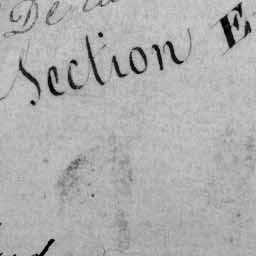 De
Section E